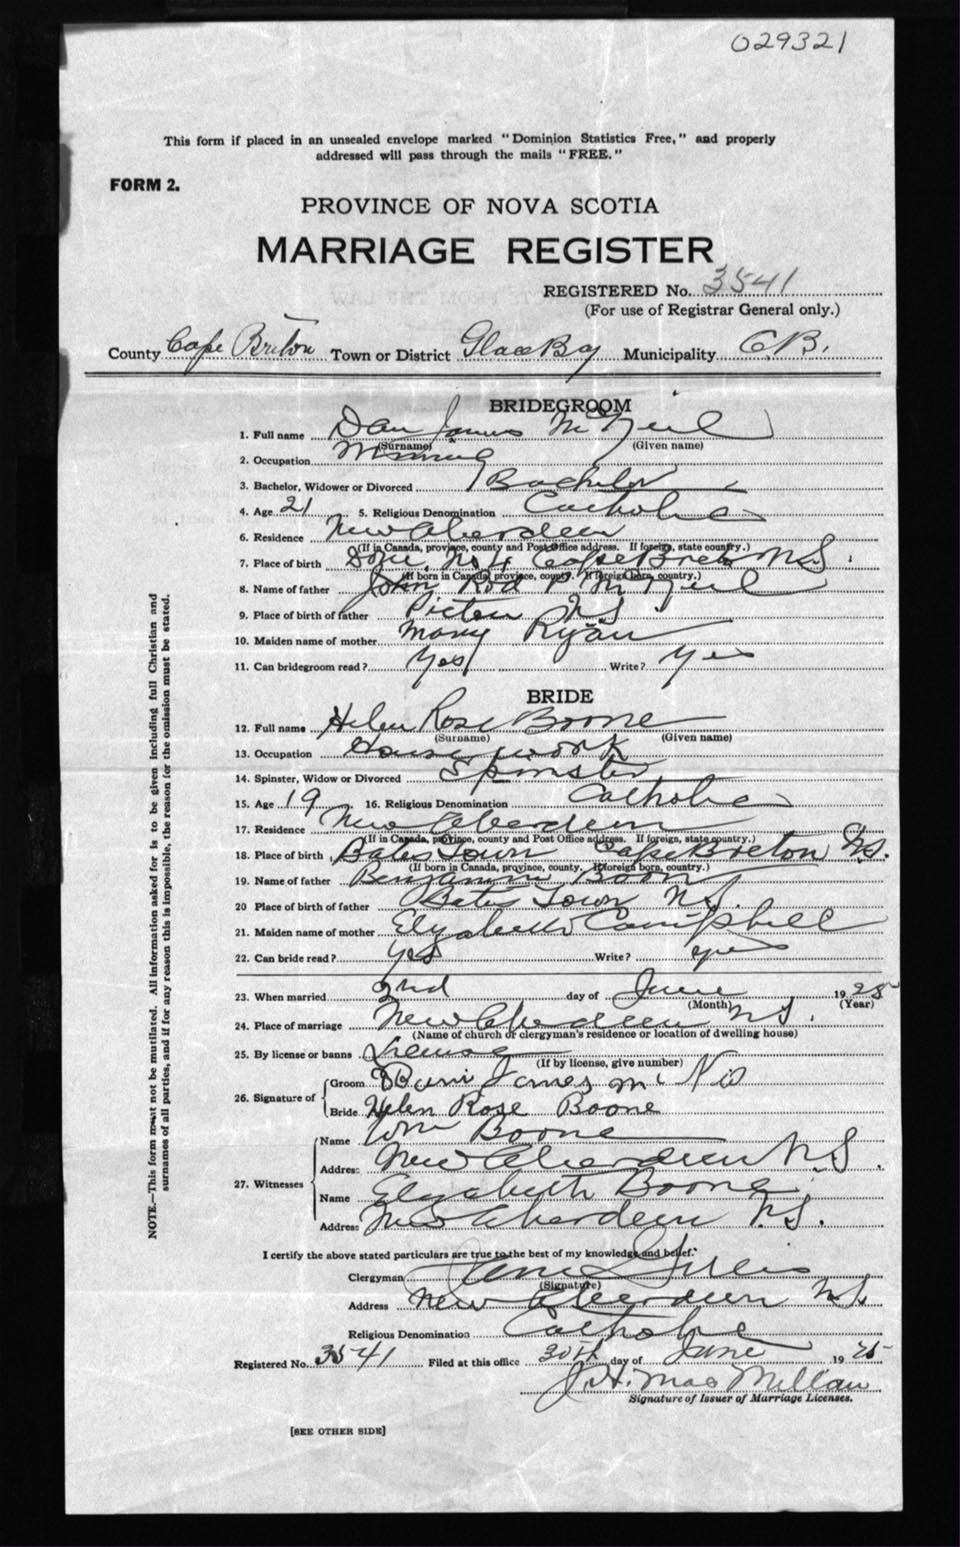 029321
This form if placed in an unsealed envelope marked "Dominion Statistics Free," and properly
addressed will pass through the mails "FREE."
FORM 2.
PROVINCE OF NOVA SCOTIA
MARRIAGE REGISTER
REGISTERED No. 3541
(For use of Registrar General only.)
County Cape Breton Town or District Glace Bay Municipality C.B.
BRIDEGROOM
1. Full name Dan James McNeil
(Surname) (Given name)
2. Occupation
3. Bachelor, Widower or Divorced Bachelor
4. Age 21 5. Religious Denomination Catholic
6. Residence New Aberdeen
(If in Canada, province, county and Post Office address. If foreign, state country.)
7. Place of birth No 4 Cape Breton N.S.
(If born in Canada, province, county. If foreign born, country.)
8. Name of father John Rod McNeil
9. Place of birth of father Pictou N S
10. Maiden name of mother Mary Ryan
11. Can bridegroom read? Yes Write? Yes
BRIDE
12. Full name Helen Rose Boone
(Surname) (Given name)
13. Occupation House work
14. Spinster, Widow or Divorced Spinster
15. Age 19 16. Religious Denomination Catholic
17. Residence New Aberdeen
(If in Canada, province, county and Post Office address. If foreign, state country.)
18. Place of birth Town Cape Breton N.S.
(If born in Canada, province, county. If foreign born, country.)
19. Name of father Benjamin Boon
20 Place of birth of father Town N.S.
21. Maiden name of mother Elyzabeth Campbell
22. Can bride read? yes Write? yes
23. When married 2nd day of June 1925
(Month) (Year)
24. Place of marriage New Aberdeen N.S.
(Name of church or clergyman's residence or location of dwelling house)
25. By license or banns License
(If by license, give number)
26. Signature of Groom James Mc
Bride Helen Rose Boone
27. Witnesses Name Wm Boone
Address New Aberdeen N.S.
Name Elyzabeth Boone
Address New Aberdeen N.S.
I certify the above stated particulars are true to the best of my knowledge and belief.
Clergyman Gillis
(Signature)
Address New Aberdeen N.S.
Religious Denomination Catholic
Registered No. 3541 Filed at this office 30th day of June 1925
J. H. MacMillan
Signature of Issuer of Marriage Licenses.
[SEE OTHER SIDE]
NOTE.—This form must not be mutilated. All information asked for is to be given including full Christian and
surnames of all parties, and if for any reason this is impossible, the reason for the omission must be stated.